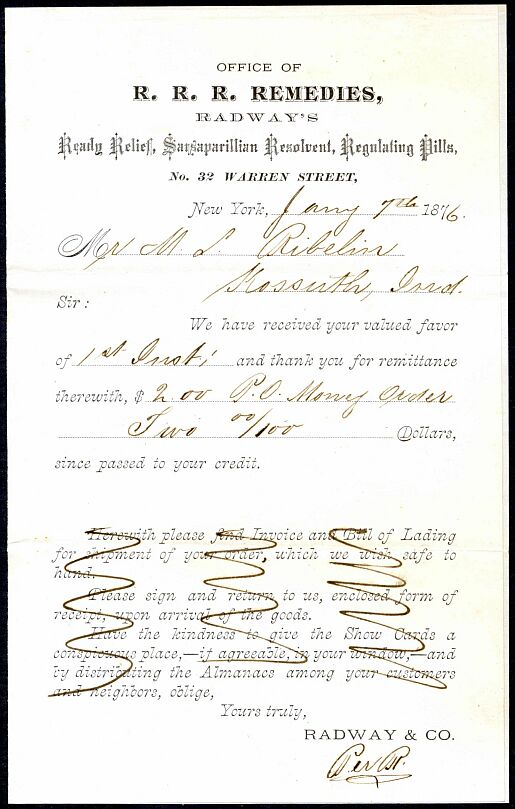 OFFICE OF
R. R. R. REMEDIES,
RADWAY'S
Ready Relief, Sarsaparillian Resolvent, Regulating Pills,
No. 32 WARREN STREET,
New York, Jany 7th 1876.
Mr M L Ribelin
Kossuth, Ind.
Sir:
We have received your valued favor
of 1st Inst; and thank you for remittance
therewith, $ 2.00 P.O. Money Order
Two 00/100 Dollars,
since passed to your credit.
Herewith please find Invoice and Bill of Lading
for shipment of your order, which we wish safe to
hand.
Please sign and return to us, enclosed form of
receipt, upon arrival of the goods.
Have the kindness to give the Show Cards a
conspicuous place,—if agreeable, in your window,—and
by distributing the Almanacs among your customers
and neighbors, oblige,
Yours truly,
RADWAY & CO.
Per